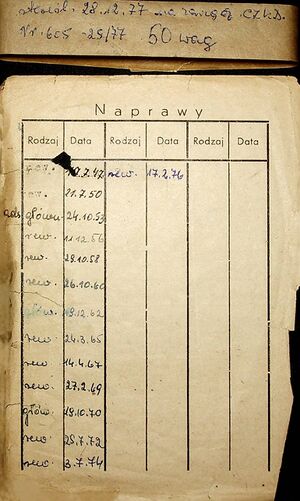 28.12.77 na
Nr. 605-25/77 50 wag
Naprawy
Rodzaj Data Rodzaj Data Rodzaj Data
.7.47 rew. 17.2.76
21.7.50
główn. 24.10.53
rew. 11.12.56
rew. 29.10.58
rew. 26.10.60
główn. 19.12.62
rew. 24.3.65
rew. 14.4.67
rew. 27.2.69
główn. 19.10.70
rew. 25.7.72
rew. 3.7.74